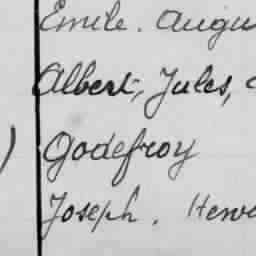 Emile. Augu
Albert, Jules,
Godefroy
Joseph. Henr